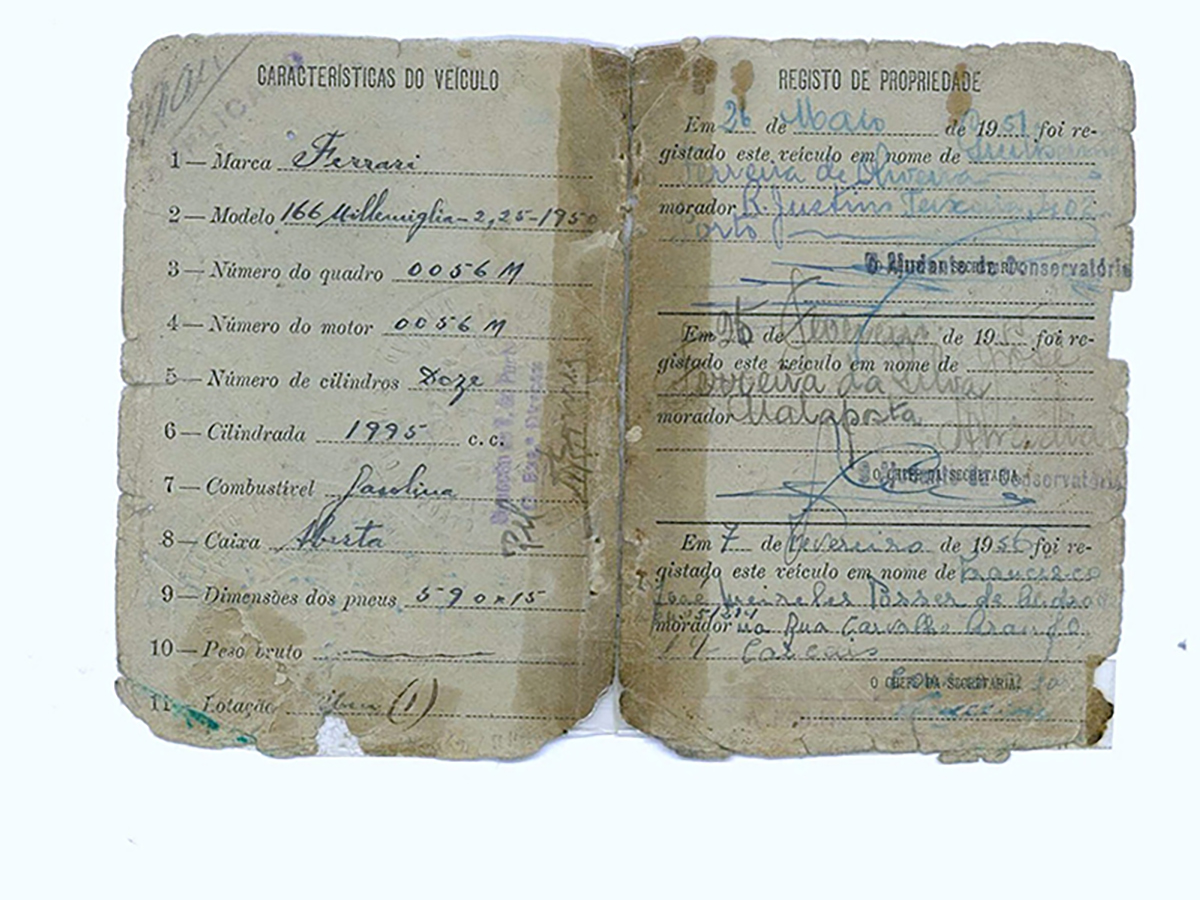 CARACTERÍSTICAS DO VEÍCULO
1—Marca Ferrari
2—Modelo 166 Millemiglia-2,25-1950
3—Número do quadro 0056 M
4—Número do motor 0056 M
5—Número de cilindros Doze
6—Cilindrada 1995 c. c.
7—Combustível Gasolina
8—Caixa Aberta
9—Dimensões dos pneus 590x15
10—Peso bruto
11—Lotação (1)
REGISTO DE PROPRIEDADE
Em 26 de Maio de 1951 foi re-
gistado este veículo em nome de
Ferreira de Oliveira
morador R. Justino Teixeira, 402
Porto
O Ajudante da Conservatória
Em 26 de Fevereiro de 19 foi re-
gistado este veículo em nome de José
Ferreira da Silva
morador Malaposta
O CHEFE DA SECRETARIA
Em 7 de Fevereiro de 1956 foi re-
gistado este veículo em nome de Francisco
de
morador na Rua Carvalho Araujo
Cascais
O CHEFE DA SECRETARIA